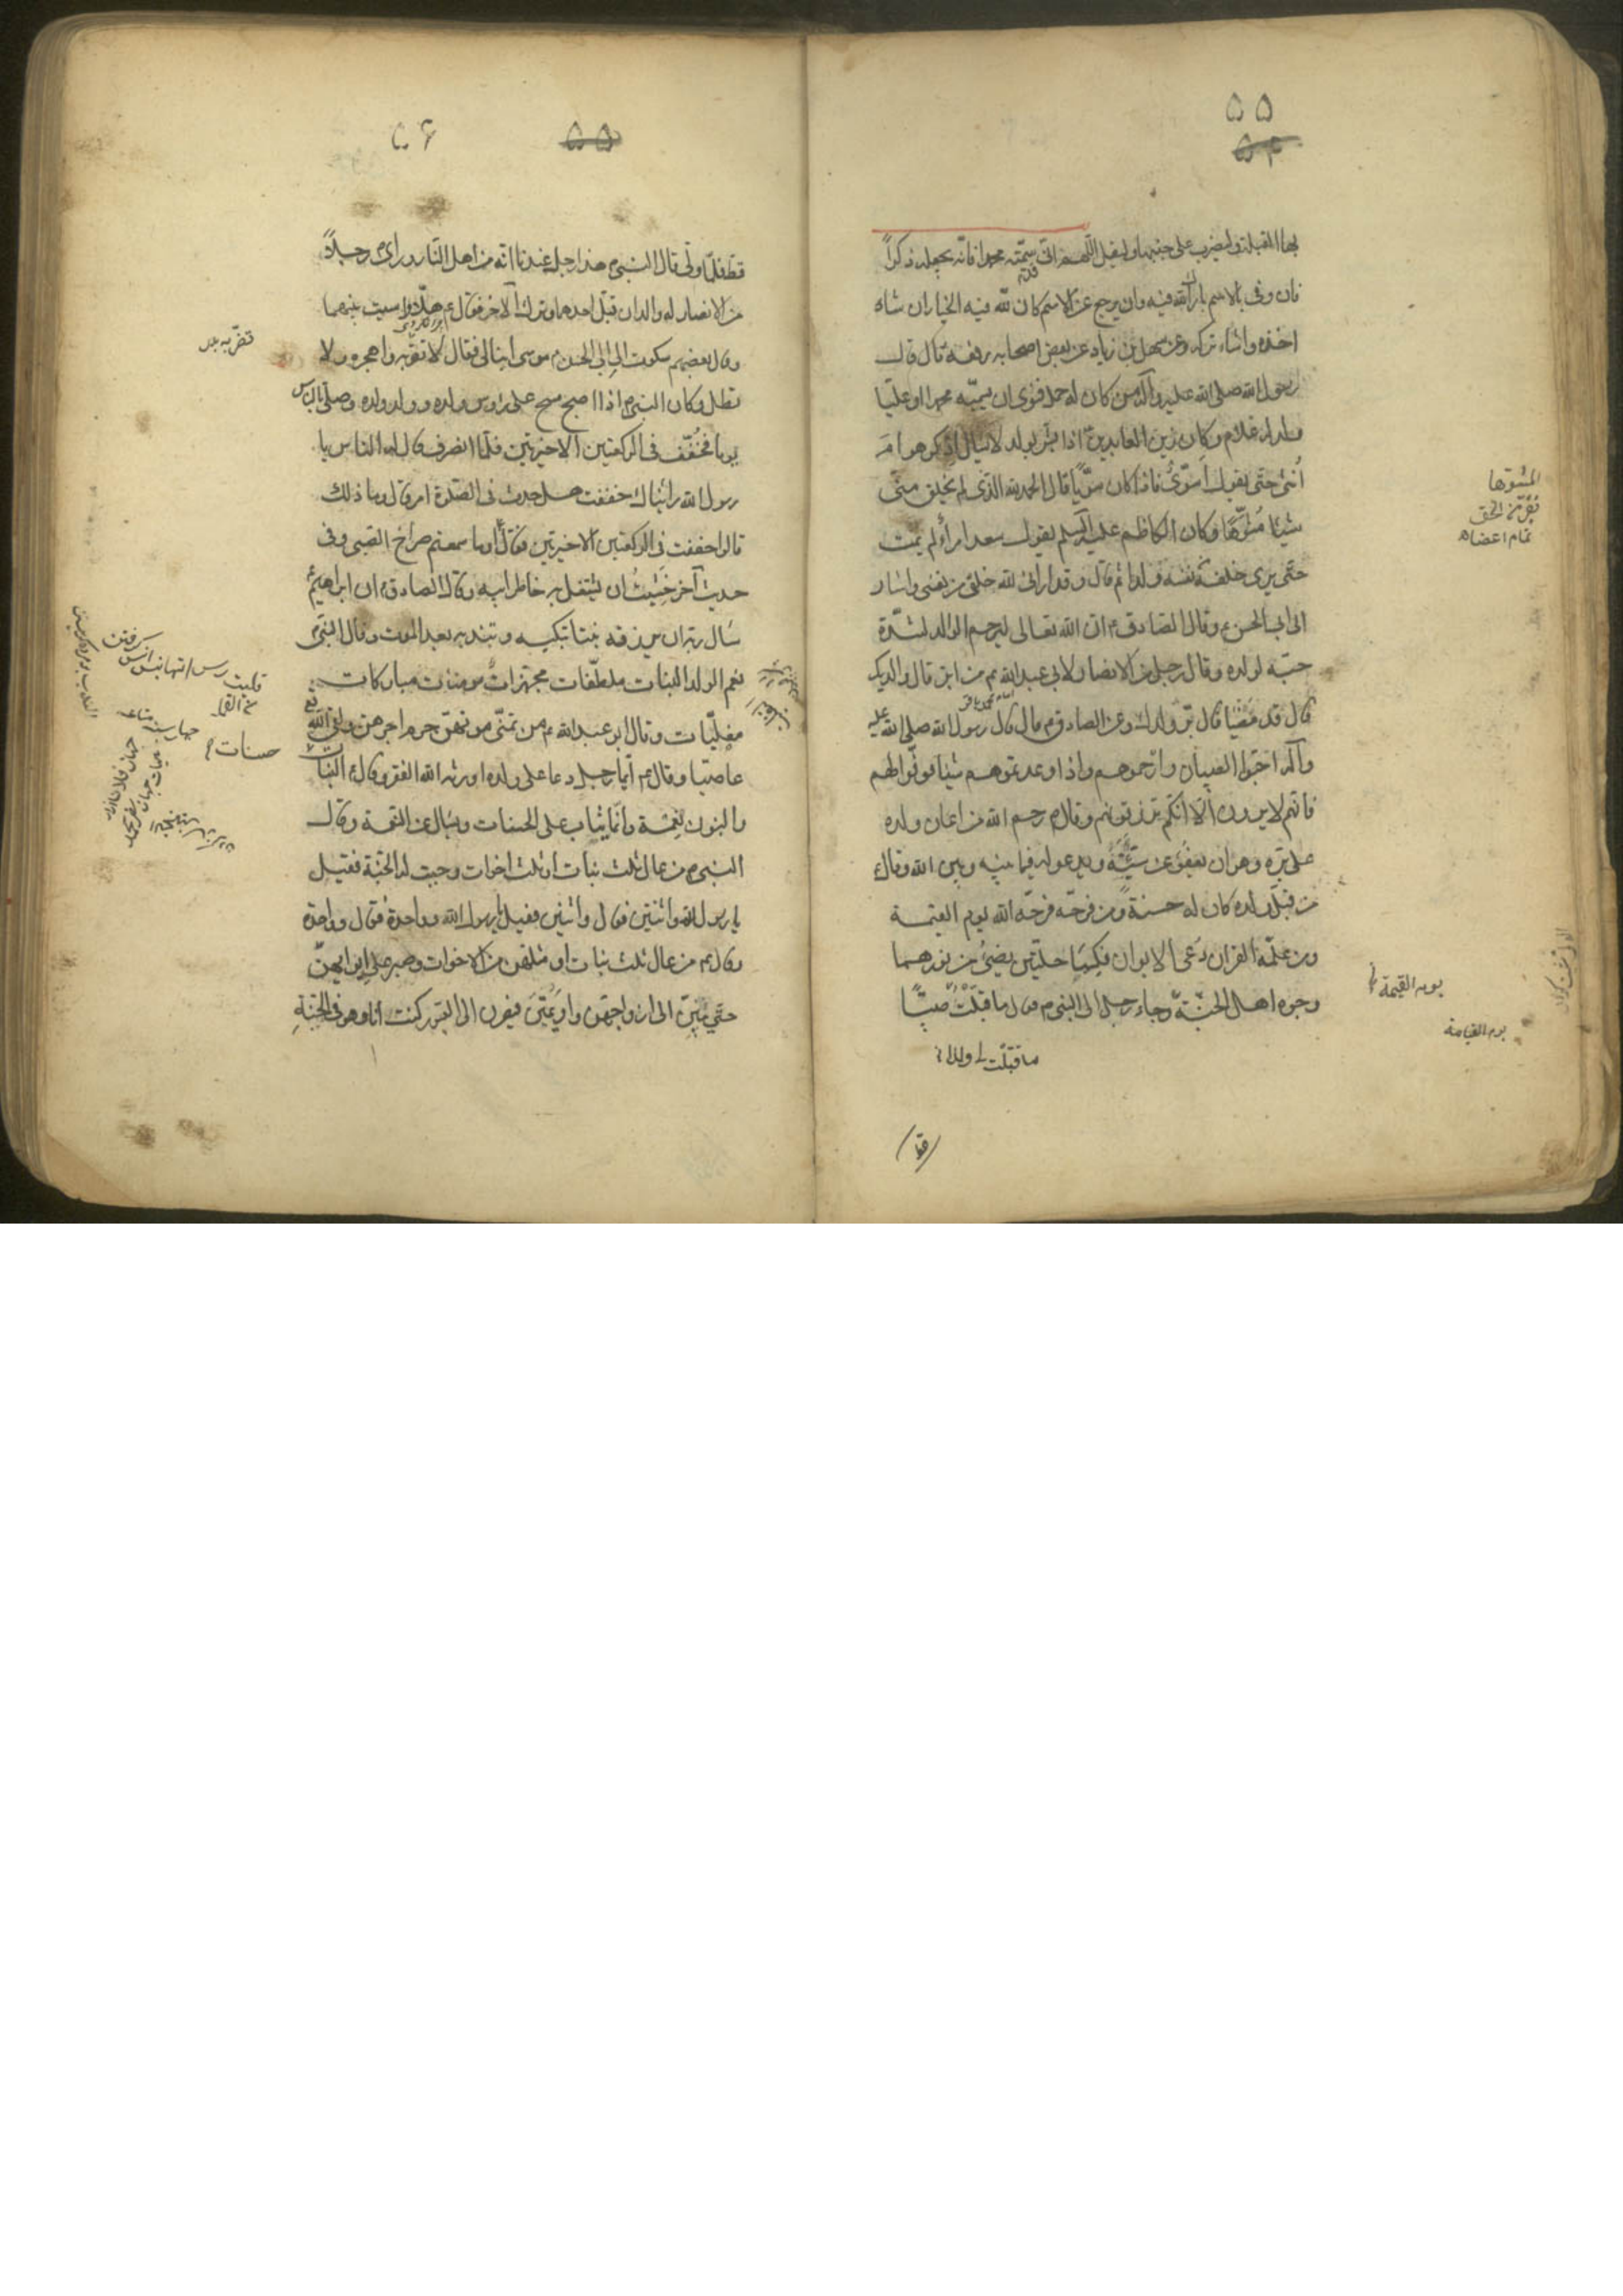 ۵۵
۵۴
بها القبلة وليضرب على جنبها وليقل اللهم انى سميته محمدا فانه يجعله ذكراً
فان وفى بالاسم بارك الله فيه وان يرجع عن الاسم كان لله فيه الخيار ان شاء
اخذه وانشاء تركه وعن سهل بن زياد عن بعض اصحابه رفعه قال قال
رسول الله صلى الله عليه وآله من كان له حمل فنوى ان يسميه محمدا او عليا
ولد له غلام وكان زين العابدين اذا بشر بولد لا يسال اذكر هو ام
أنثى حتى يقول أسوىّ فاذا كان سويا قال الحمد لله الذى لم يخلق منى
شيئا مشوّها وكان الكاظم عليه السلم يقول سعد امرأ لم يمت
حتى يرى خلفه من نفسه ولدا ثم قال وقد ارانى الله خلفى من نفسى واشار
الى ابى الحسن ع وقال الصادق ع ان الله تعالى ليرحم الوالد لشدة
حبّه لولده وقال رجل من الانصار لابى عبد الله ع من ابرّ قال والديك
قال قد مضيا قال برّ ولدك وعن الصادق ع قال قال رسول الله صلى الله عليه
وآله احبّوا الصبيان وارحموهم واذا وعدتموهم شيئا فوفوا لهم
فانهم لا يرون الّا انكم ترزقونهم وقال ع رحم الله من اعان ولده
على برّه وهو ان يعفو عن سيّئته ويدعو له فيما بينه وبين الله وقال
من قبّل ولده كان له حسنة ومن فرحه فرحه الله يوم القيمة
ومن علّمه القران دعى الابوان فكسيا حلّتين يضئ من نورهما
وجوه اهل الجنّة وجاء رجل الى النبى ص فقال ما قبّلت صبيّا
ما قبّلت لى ولدا
قط
المشوّها
تمام اعضاء
يوم القيمة
يوم القيامة
۵۵
۵۶
قطّ فلمّا ولّى قال النبى ص هذا رجل عندنا انه من اهل النّار وراى ص رجلاً
من الانصار له ولدان قبّل احدهما وترك الآخر فقال ع هلّا واسيت بينهما
وقال بعضهم شكوت الى ابى الحسن موسى ابنا لى فقال لا تضربه واهجره ولا
تطل وكان النبى ص اذا اصبح مسح على رؤس ولده وولد ولده وصلى بالناس
يوما فخفّف فى الركعتين الاخيرتين فلمّا انصرف قال له الناس يا
رسول الله رأيناك خففت هل حدث فى الصلوة امر قال وما ذلك
قالوا خففت فى الركعتين الاخيرتين فقال أوما سمعتم صراخ الصبى وفى
حديث آخر خشيت ان يشتغل به خاطر ابيه وقال الصادق ع ان ابراهيم ع
سأل ربّه ان يرزقه بنتا تبكيه وتندبه بعد الموت وقال النبى ص
نعم الولد البنات ملطّفات مجهّزات مونسات مباركات
مفلّيات وقال ابو عبد الله ع من تمنّى موتهنّ حرم اجرهن ولقى الله تع
عاصيا وقال ع ايّما رجل دعا على ولده اورثه الله الفقر وقال ع البنات
والبنون نعمة وانّما يثاب على الحسنات ويسال عن النعمة وقال
النبى ص من عال ثلث بنات او ثلث اخوات وجبت له الجنّة فقيل
يا رسول الله واثنتين فقال واثنين فقيل يا رسول الله وواحدة فقال وواحدة
وقال ع من عال ثلث بنات او مثلهن من الاخوات وصبر على ايوائهنّ
حتّى يبنّ الى ازواجهن او يمتن فيصرن الى القبور كنت أنا وهو فى الجنّة
حسنات